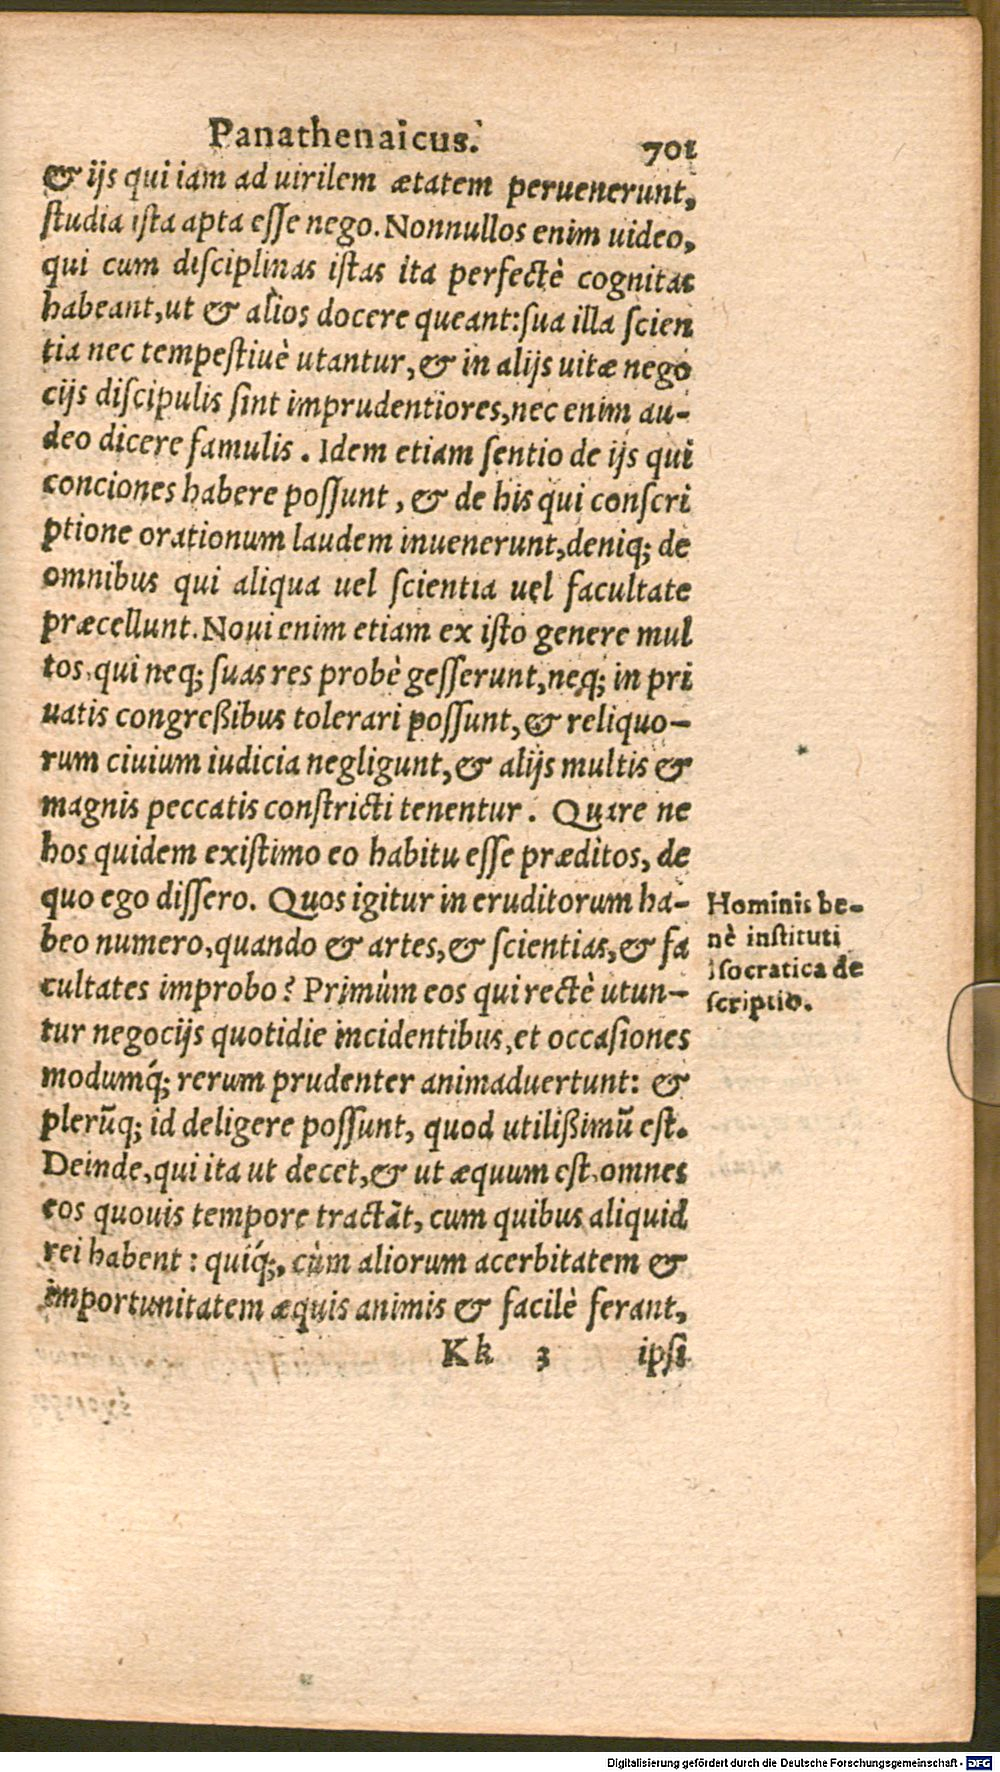 Panathenaicus. 701
& ijs qui iam ad uirilem ætatem peruenerunt,
studia ista apta esse nego. Nonnullos enim uideo,
qui cum disciplinas istas ita perfectè cognitas
habeant, ut & alios docere queant: sua illa scien
tia nec tempestiuè utantur, & in alijs uitæ nego
cijs discipulis sint imprudentiores, nec enim au-
deo dicere famulis. Idem etiam sentio de ijs qui
conciones habere possunt, & de his qui conscri
ptione orationum laudem inuenerunt, deniq; de
omnibus qui aliqua uel scientia uel facultate
præcellunt. Noui enim etiam ex isto genere mul
tos, qui neq; suas res probè gesserunt, neq; in pri
uatis congreßibus tolerari possunt, & reliquo-
rum ciuium iudicia negligunt, & alijs multis &
magnis peccatis constricti tenentur. Quare ne
hos quidem existimo eo habitu esse præditos, de
quo ego dissero. Quos igitur in eruditorum ha-
beo numero, quando & artes, & scientias, & fa
cultates improbo? Primùm eos qui rectè utun-
tur negocijs quotidie incidentibus, et occasiones
modumq́; rerum prudenter animaduertunt: &
plerũq; id deligere possunt, quod utilißimũ est.
Deinde, qui ita ut decet, & ut æquum est, omnes
eos quouis tempore tractãt, cum quibus aliquid
rei habent: quiq́;, cùm aliorum acerbitatem &
importunitatem æquis animis & facilè ferant,
Kk 3 ipsi
Hominis be-
nè instituti
Isocratica de
scriptio.
Digitalisierung gefördert durch die Deutsche Forschungsgemeinschaft - DFG